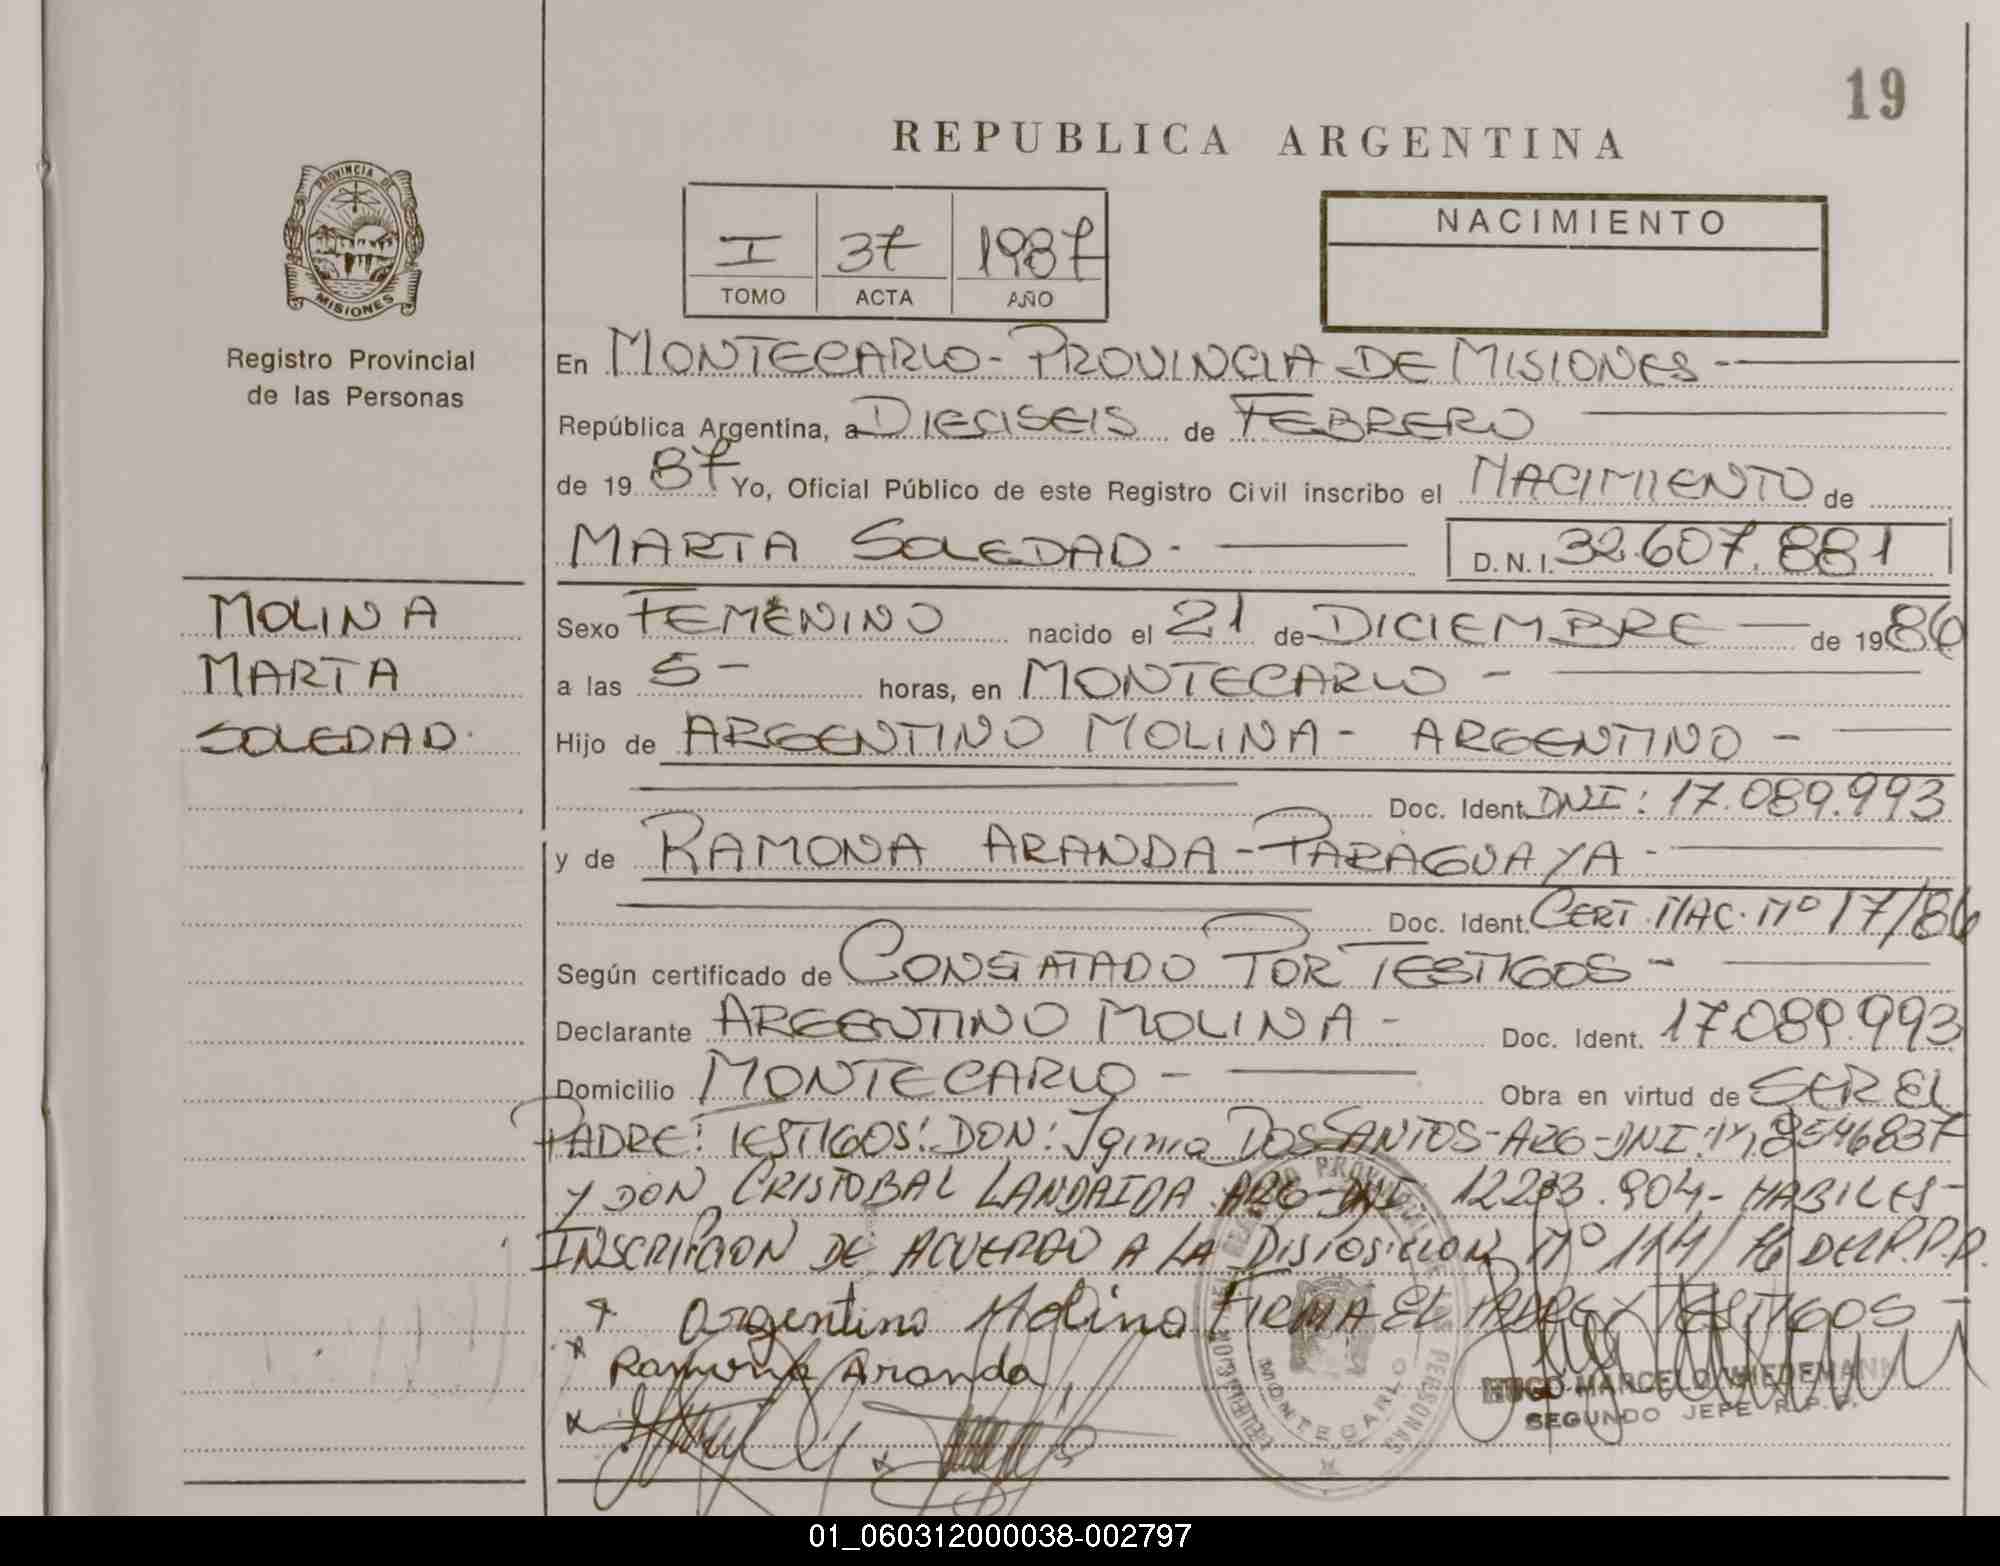 19
REPUBLICA ARGENTINA
PROVINCIA DE MISIONES
Registro Provincial
de las Personas
I 37 1987
TOMO ACTA AÑO
NACIMIENTO
En MONTECARLO - PROVINCIA DE MISIONES -
República Argentina, a DIECISEIS de FEBRERO
de 19 87 Yo, Oficial Público de este Registro Civil inscribo el NACIMIENTO de
MARTA SOLEDAD - D.N.I. 32.607.881
MOLINA
MARTA
SOLEDAD.
Sexo FEMENINO nacido el 21 de DICIEMBRE de 1986
a las 5 - horas, en MONTECARLO -
Hijo de ARGENTINO MOLINA - ARGENTINO -
Doc. Ident. DNI: 17.089.993
y de RAMONA ARANDA - PARAGUAYA -
Doc. Ident. CERT. NAC. Nº 17/86
Según certificado de CONSTATADO POR TESTIGOS -
Declarante ARGENTINO MOLINA - Doc. Ident. 17.089.993
Domicilio MONTECARLO - Obra en virtud de SER EL
PADRE: TESTIGOS: DON: DOS SANTOS - ARG - DNI:
Y DON CRISTOBAL LANDAIDA ARG - DNI 904 - HABILES -
INSCRIPCION DE ACUERDO A LA DISPOSICION Nº 114/76 DEL R.P.P.
Argentino Molina FIRMA EL PADRE Y TESTIGOS -
Ramona Aranda
HUGO MARCELO WIEDEMANN
SEGUNDO JEFE R.P.P.
MONTECARLO
01_060312000038-002797